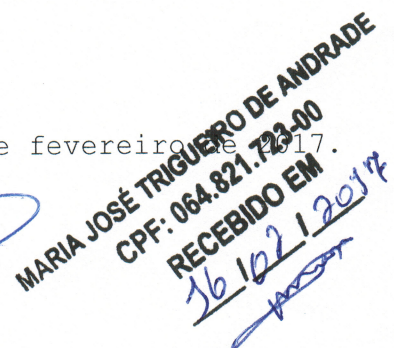 e fevereiro de 2017.
MARIA JOSÉ TRIGUEIRO DE ANDRADE
CPF: 064.821.723-00
RECEBIDO EM
16/02/2017